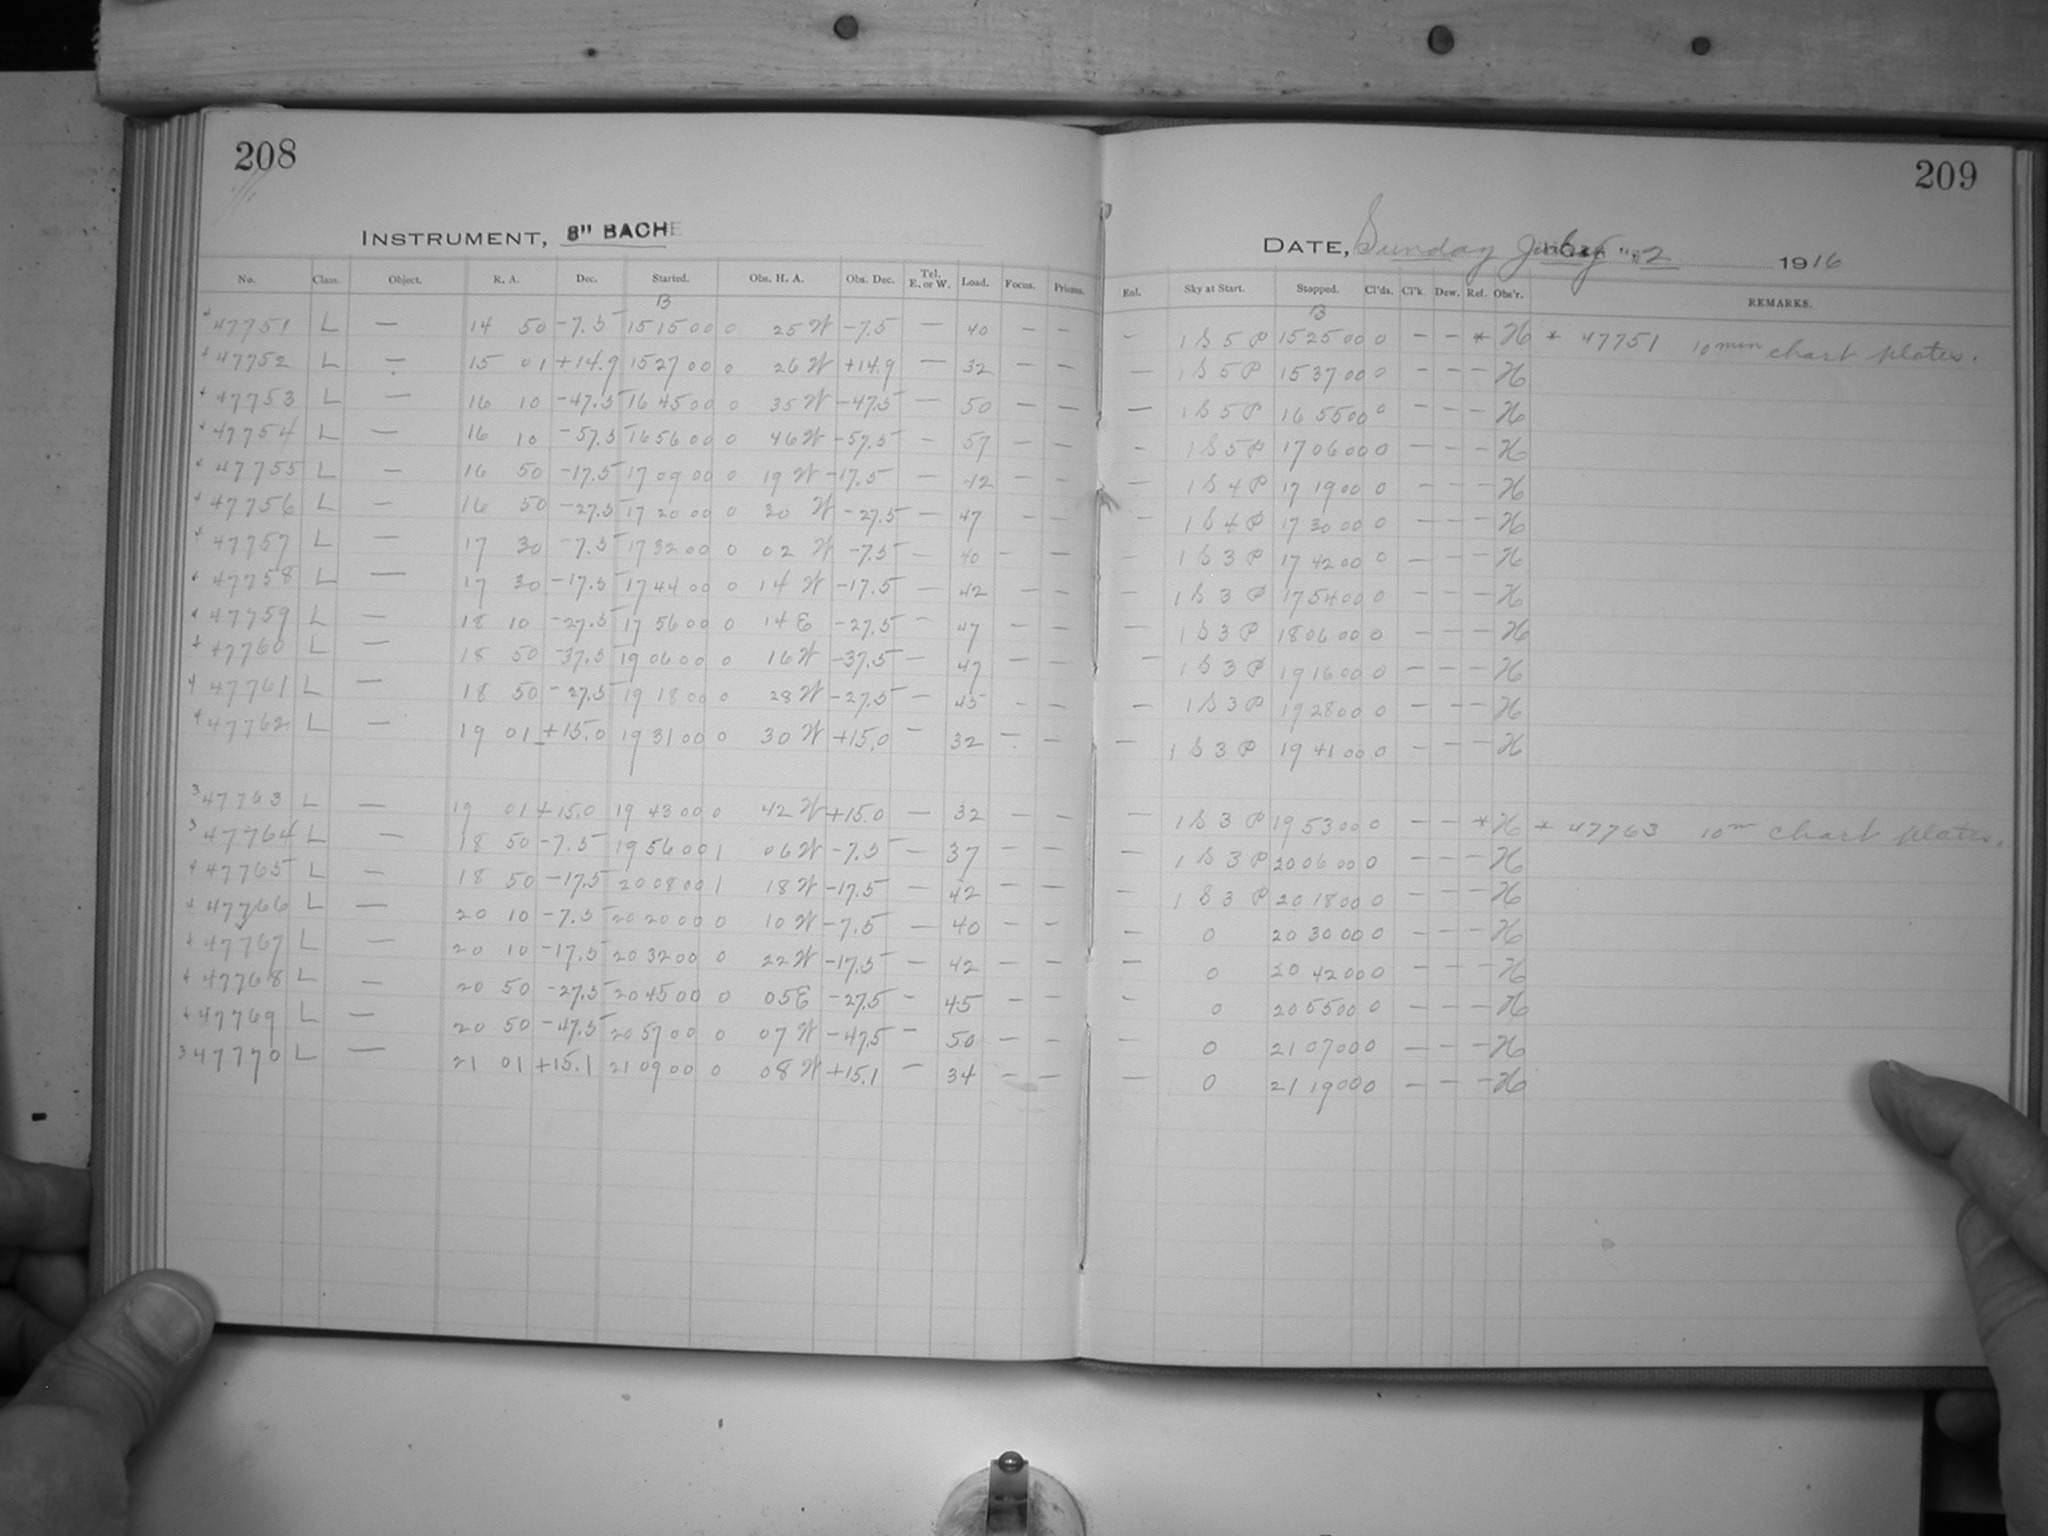 208
INSTRUMENT, 8" BACHE
No. Class. Object. R. A. Dec. Started. Obs. H. A. Obs. Dec. Tel. E. or W. Load. Focus. Prisms.
B
* 47751 L — 14 50 -7.5 15 15 00 0 25 W -7.5 — 40 — —
* 47752 L — 15 01 +14.9 15 27 00 0 26 W +14.9 — 32 — —
* 47753 L — 16 10 -47.5 16 45 00 0 35 W -47.5 — 50 — —
* 47754 L — 16 10 -57.5 16 56 00 0 46 W -57.5 — 57 — —
* 47755 L — 16 50 -17.5 17 09 00 0 19 W -17.5 — 42 — —
* 47756 L — 16 50 -27.5 17 20 00 0 30 W -27.5 — 47 — —
* 47757 L — 17 30 -7.5 17 32 00 0 02 W -7.5 — 40 — —
* 47758 L — 17 30 -17.5 17 44 00 0 14 W -17.5 — 42 — —
* 47759 L — 18 10 -27.5 17 56 00 0 14 E -27.5 — 47 — —
* 47760 L — 18 50 -37.5 19 06 00 0 16 W -37.5 — 47 — —
* 47761 L — 18 50 -27.5 19 18 00 0 28 W -27.5 — 45 — —
* 47762 L — 19 01 +15.0 19 31 00 0 30 W +15.0 — 32 — —
3 47763 L — 19 01 +15.0 19 43 00 0 42 W +15.0 — 32 — —
3 47764 L — 18 50 -7.5 19 56 00 1 06 W -7.5 — 37 — —
* 47765 L — 18 50 -17.5 20 08 00 1 18 W -17.5 — 42 — —
* 47766 L — 20 10 -7.5 20 20 00 0 10 W -7.5 — 40 — —
* 47767 L — 20 10 -17.5 20 32 00 0 22 W -17.5 — 42 — —
* 47768 L — 20 50 -27.5 20 45 00 0 05 E -27.5 — 45 — —
* 47769 L — 20 50 -47.5 20 57 00 0 07 W -47.5 — 50 — —
3 47770 L — 21 01 +15.1 21 09 00 0 08 W +15.1 — 34 — —
209
DATE, Sunday July 2 1916
Enl. Sky at Start. Stopped. Cl'ds. Cl'k. Dew. Ref. Obs'r. REMARKS.
B
— 1 S 5 P 15 25 00 0 — — * H * 47751 10 min chart plates.
— 1 S 5 P 15 37 00 0 — — — H
— 1 S 5 P 16 55 00 0 — — — H
— 1 S 5 P 17 06 00 0 — — — H
— 1 S 4 P 17 19 00 0 — — — H
— 1 S 4 P 17 30 00 0 — — — H
— 1 S 3 P 17 42 00 0 — — — H
— 1 S 3 P 17 54 00 0 — — — H
— 1 S 3 P 18 06 00 0 — — — H
— 1 S 3 P 19 16 00 0 — — — H
— 1 S 3 P 19 28 00 0 — — — H
— 1 S 3 P 19 41 00 0 — — — H
— 1 S 3 P 19 53 00 0 — — * H * 47763 10m chart plates.
— 1 S 3 P 20 06 00 0 — — — H
— 1 S 3 P 20 18 00 0 — — — H
— 0 20 30 00 0 — — — H
— 0 20 42 00 0 — — — H
— 0 20 55 00 0 — — — H
— 0 21 07 00 0 — — — H
— 0 21 19 00 0 — — — H